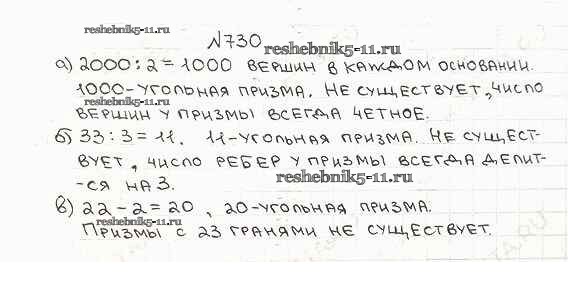 reshebnik5-11.ru
№730
reshebnik5-11.ru
а) 2000:2=1000 ВЕРШИН В КАЖДОМ ОСНОВАНИИ.
1000-УГОЛЬНАЯ ПРИЗМА. НЕ СУЩЕСТВУЕТ, ЧИСЛО
reshebnik5-11.ru
ВЕРШИН У ПРИЗМЫ ВСЕГДА ЧЕТНОЕ.
б) 33:3=11. 11-УГОЛЬНАЯ ПРИЗМА. НЕ СУЩЕСТ-
ВУЕТ, ЧИСЛО РЕБЕР У ПРИЗМЫ ВСЕГДА ДЕЛИТ-
-СЯ НА 3.
reshebnik5-11.ru
в) 22-2=20, 20-УГОЛЬНАЯ ПРИЗМА.
reshebnik5-11.ru
ПРИЗМЫ С 23 ГРАНЯМИ НЕ СУЩЕСТВУЕТ.